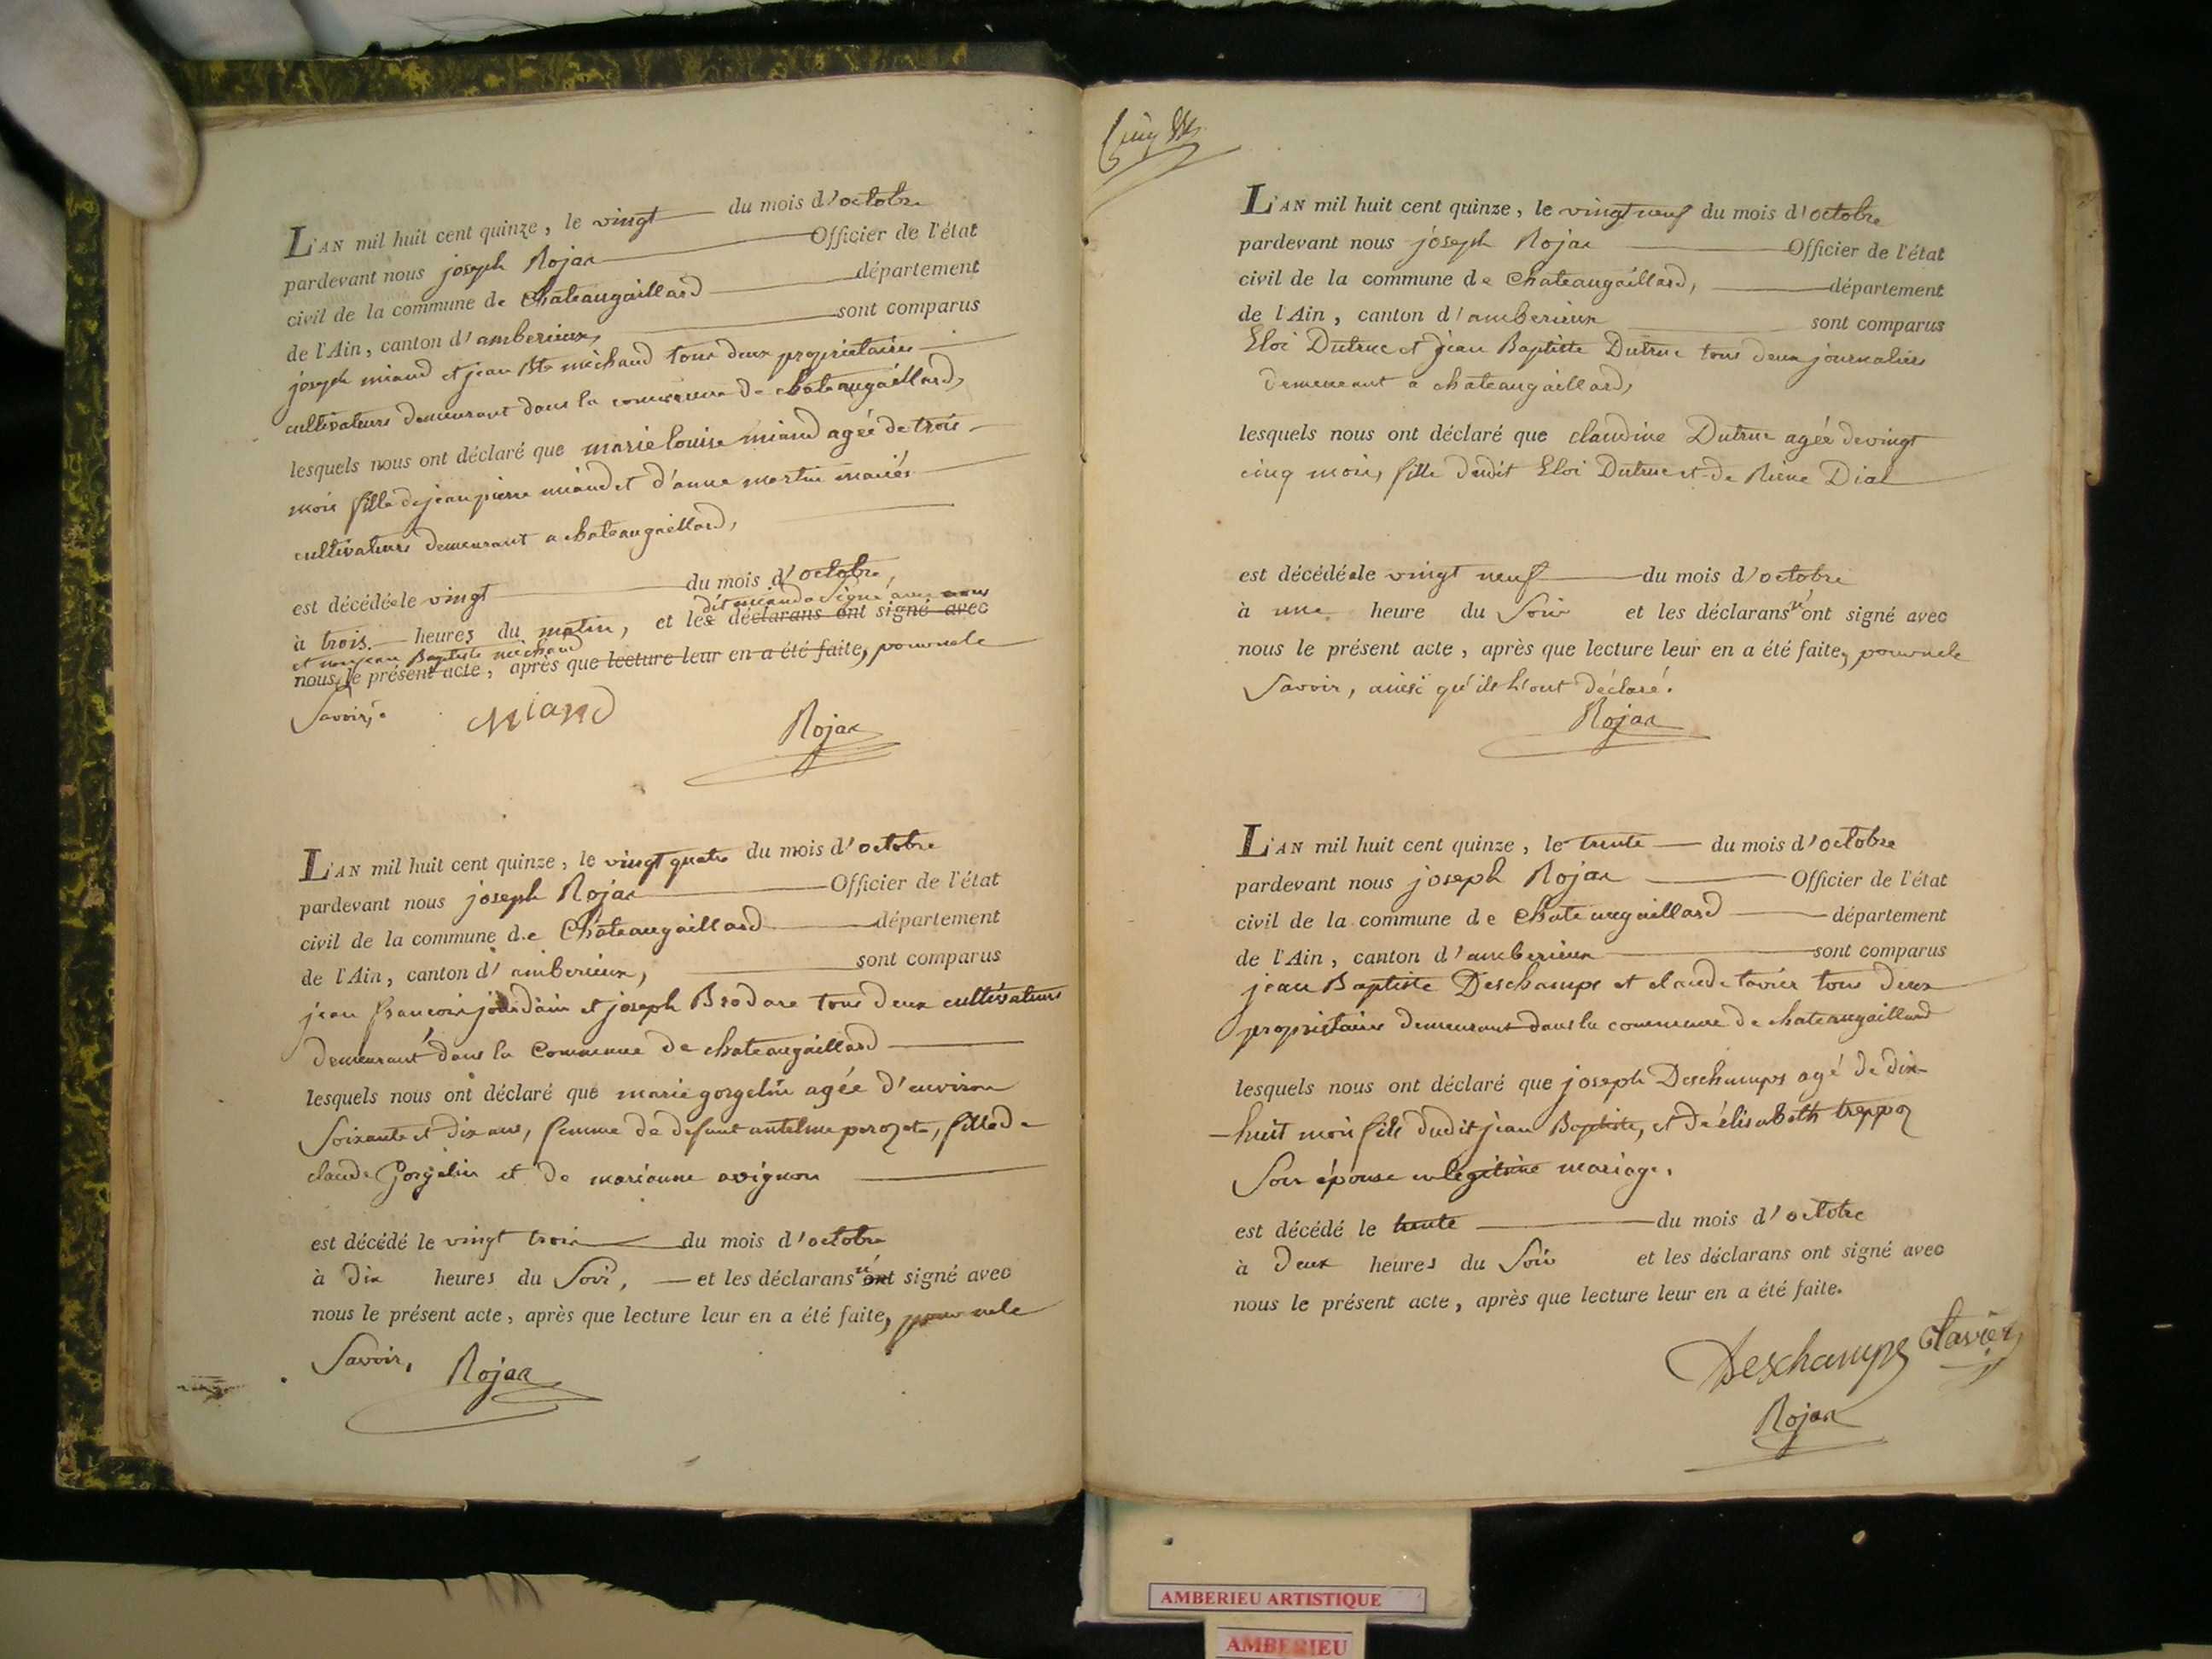 L'AN mil huit cent quinze, le vingt du mois d'octobre
pardevant nous joseph Rojar Officier de l'état
civil de la commune de Chateaugaillard département
de l'Ain, canton d'amberieux, sont comparus
joseph miand et jean Bte michaud tous deux proprietaires
cultivateurs demeurant dans la commune de chateaugaillard,
lesquels nous ont déclaré que marie louise miand agée de trois
mois fille de jean pierre miand et d'anne martin mariés
cultivateurs demeurant a chateaugaillard,
est décédée le vingt du mois d'octobre
dit miand a signé avec nous
à trois heures du matin, et les déclarans ont signé avec
et non jean Baptiste michaud
nous le présent acte, après que lecture leur en a été faite, pour ne le
Savoir,
Miand
Rojar
L'AN mil huit cent quinze, le vingt quatre du mois d'octobre
pardevant nous joseph Rojar Officier de l'état
civil de la commune de Chateaugaillard département
de l'Ain, canton d'amberieux, sont comparus
jean francois jourdain et joseph Brodare tous deux cultivateurs
demeurant dans la Commune de chateaugaillard
lesquels nous ont déclaré que marie gorgelin agée d'environ
Soixante et dix ans, femme de defunt antelme , fille de
claude Gorgelin et de marianne avignon
est décédé le vingt trois du mois d'octobre
à dix heures du Soir, et les déclarans n'ont signé avec
nous le présent acte, après que lecture leur en a été faite, pour ne le
Savoir,
Rojar
L'AN mil huit cent quinze, le vingt neuf du mois d'octobre
pardevant nous joseph Rojar Officier de l'état
civil de la commune de Chateaugaillard, département
de l'Ain, canton d'amberieux sont comparus
Eloi Dutruc et jean Baptiste Dutruc tous deux journaliers
demeurant a chateaugaillard,
lesquels nous ont déclaré que claudine Dutruc agée de vingt
cinq mois, fille dudit Eloi Dutruc et de Reine Dial
est décédée le vingt neuf du mois d'octobre
à une heure du Soir et les déclarans n'ont signé avec
nous le présent acte, après que lecture leur en a été faite, pour ne le
Savoir, ainsi qu'ils l'ont déclaré.
Rojar
L'AN mil huit cent quinze, le trente du mois d'octobre
pardevant nous joseph Rojar Officier de l'état
civil de la commune de Chateaugaillard département
de l'Ain, canton d'amberieux sont comparus
jean Baptiste Deschamps et claude tavier tous deux
proprietaires demeurant dans la commune de chateaugaillard
lesquels nous ont déclaré que joseph Deschamps agé de dix-
huit mois fils dudit jean Baptiste, et de élisabeth treppoz
Son épouse en legitime mariage.
est décédé le trente du mois d'octobre
à Deux heures du Soir et les déclarans ont signé avec
nous le présent acte, après que lecture leur en a été faite.
Deschamps Ctavier
Rojar
AMBERIEU ARTISTIQUE
AMBERIEU